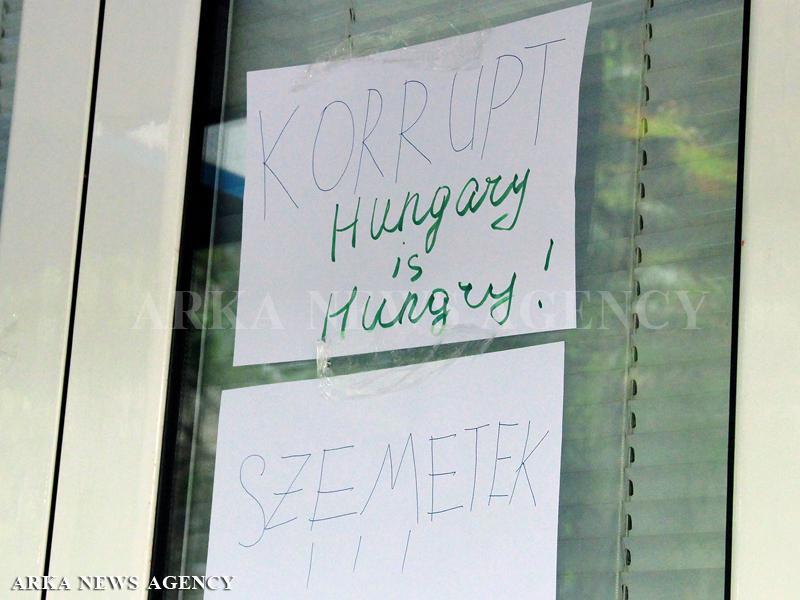 KORRUPT
Hungary
is
Hungry!
ARKA NEWS AGENCY
SZEMETEK
!!!
ARKA NEWS AGENCY